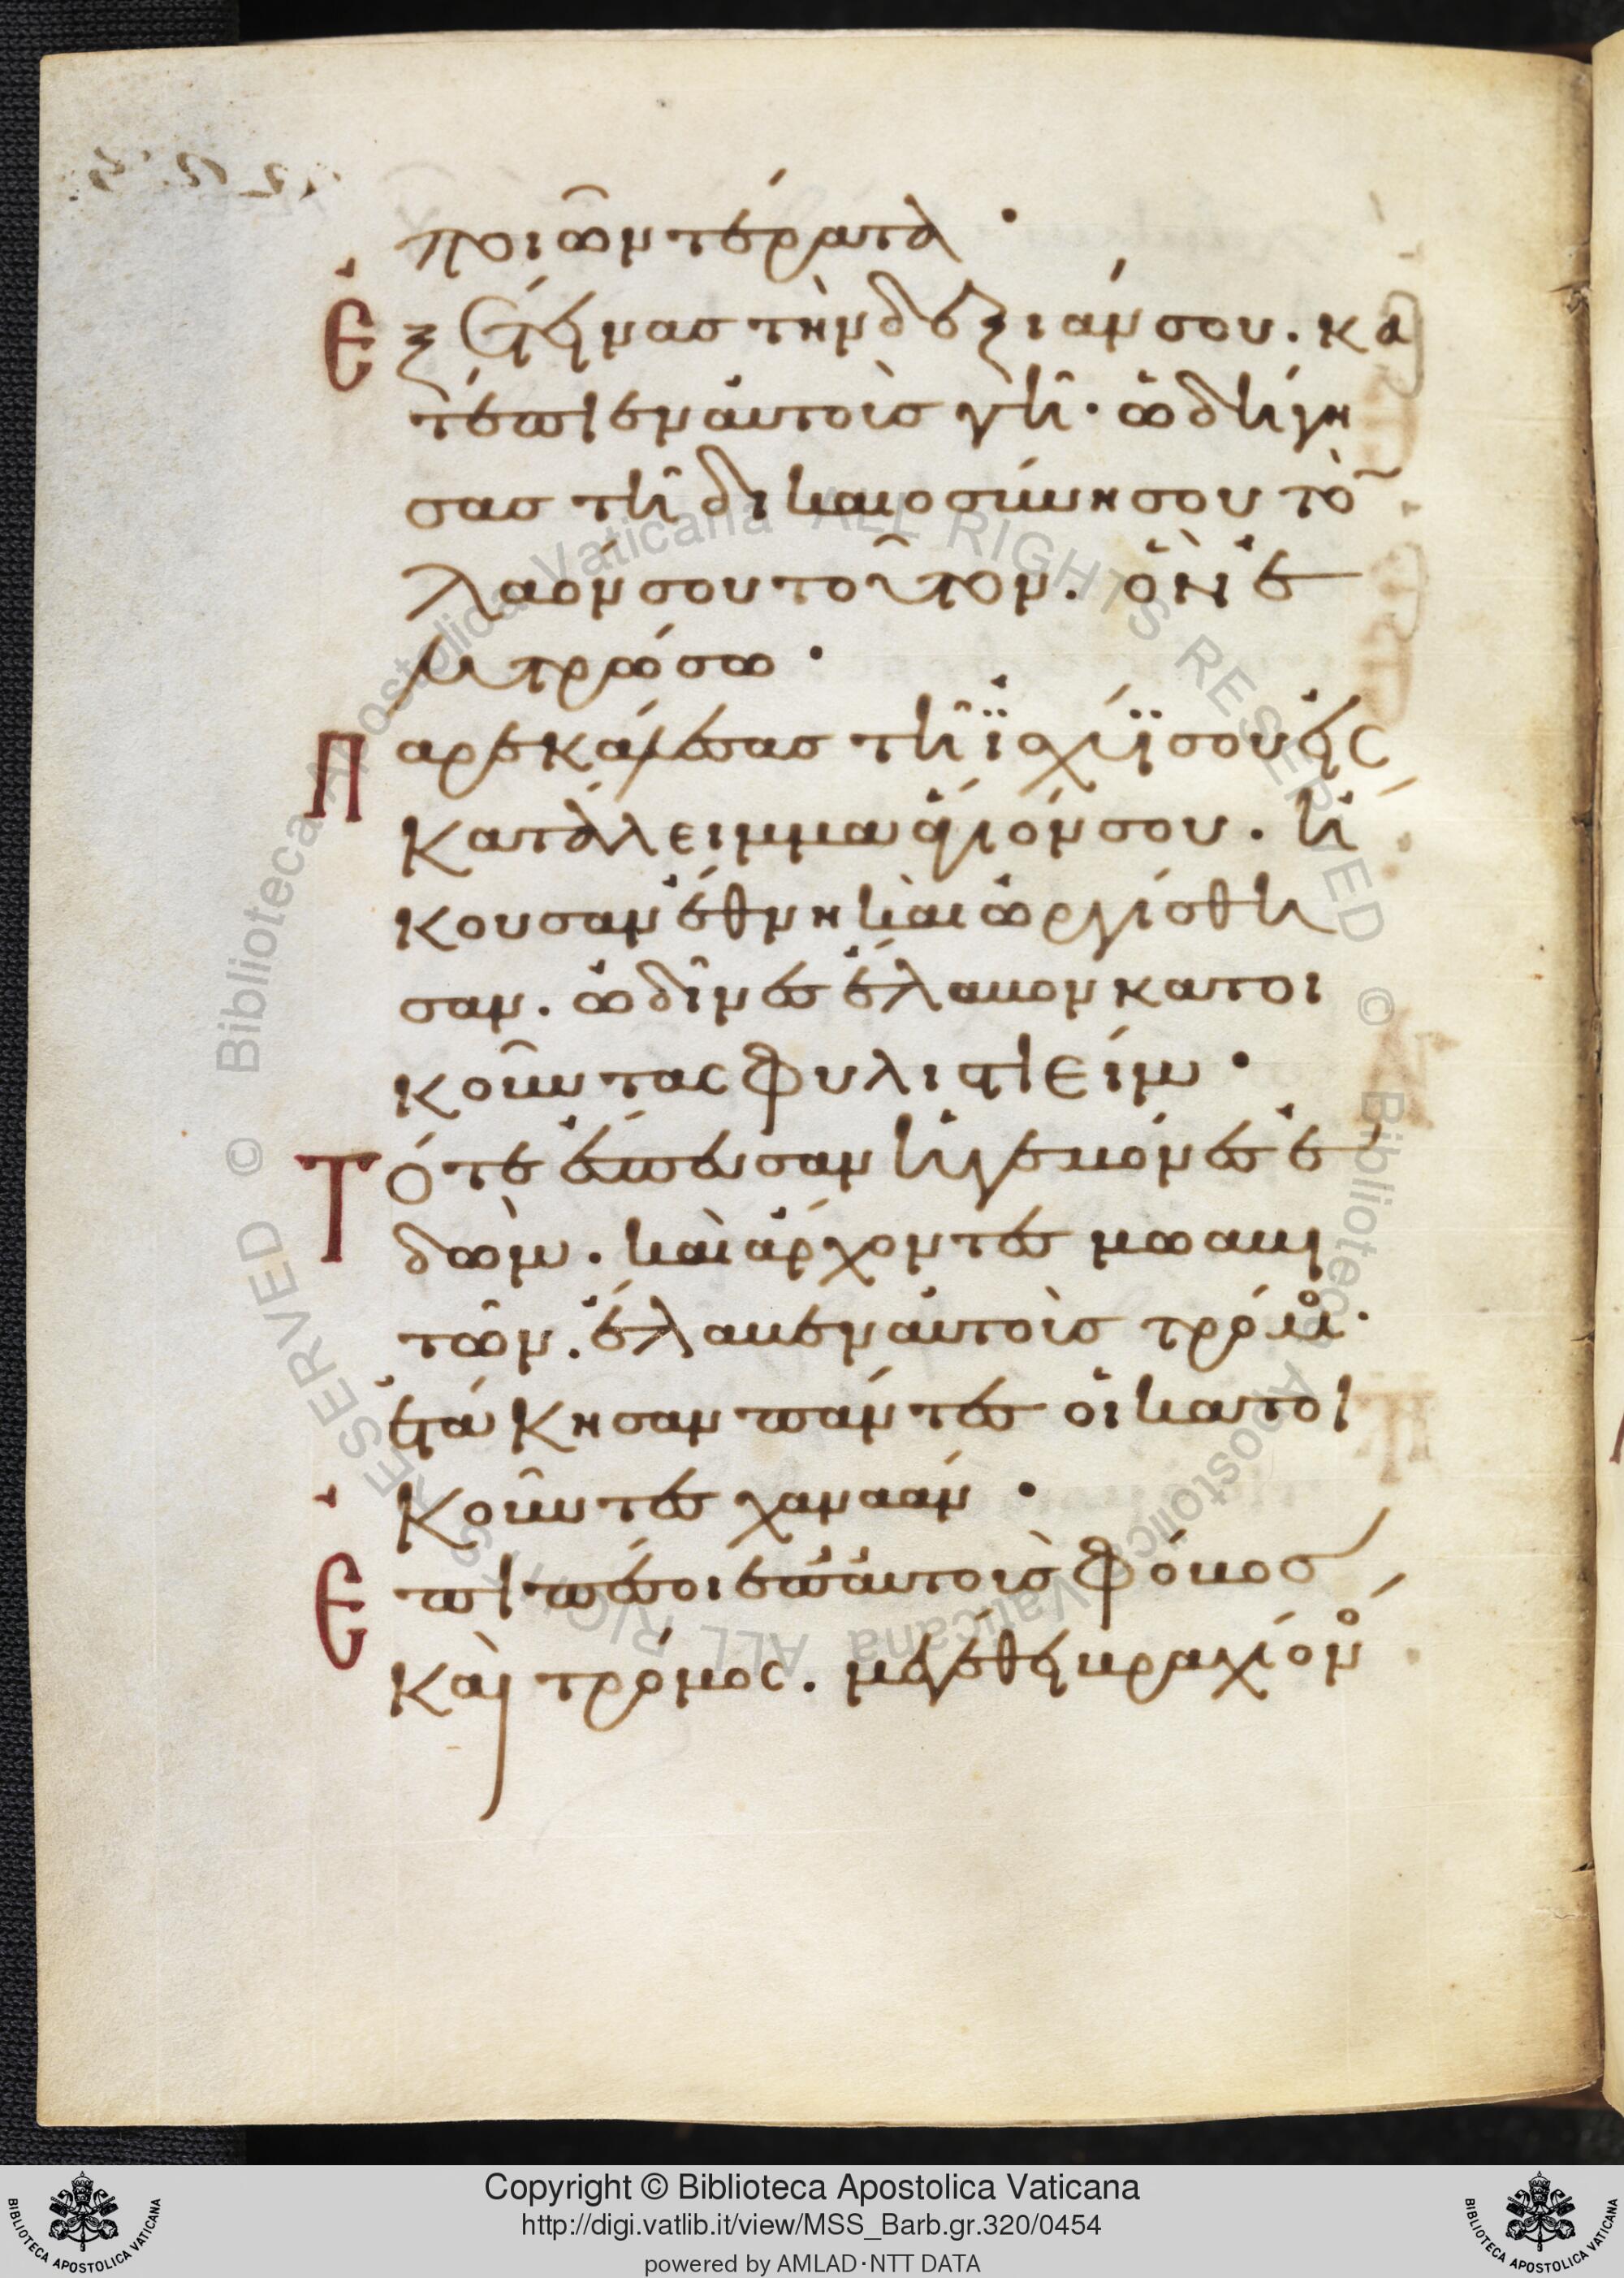 ποιῶν τέρατα ·
Ἐξέτεινας τὴν δεξιάν σου. κα
τέπιεν αὐτοὺς γῆ· ὡδήγη
σας τῇ δικαιοσύνη σου τὸν
λαόν σου τοῦτον. ὃν ἐ
λυτρώσω ·
Παρεκάλεσας τῇ ϊσχύϊ σου εἰς
κατάλειμμα ἅγιόν σου. ἤ
κουσαν ἔθνη καὶ ὠργίσθη
σαν. ὠδῖνες ἔλαβον κατοι
κοῦντας φυλιστιείμ ·
Τότε ἔσπευσαν ἡγεμόνες ἐ
δώμ. καὶ ἄρχοντες μωαβι
τῶν. ἔλαβεν αὐτοὺς τρόμος·
ἐτάκησαν πάντες οἱ κατοι
κοῦντες χαναάν ·
Ἐπιπέσοι ἐπ' αὐτοὺς φόβος
καὶ τρόμος. μεγέθει βραχίον
Copyright © Biblioteca Apostolica Vaticana
http://digi.vatlib.it/view/MSS_Barb.gr.320/0454
powered by AMLAD·NTT DATA